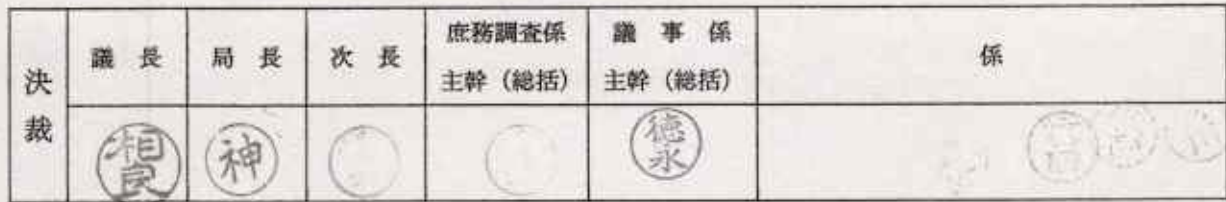 決裁
議長
局長
次長
庶務調査係
主幹(総括)
議事係
主幹(総括)
係
相良
神
徳永